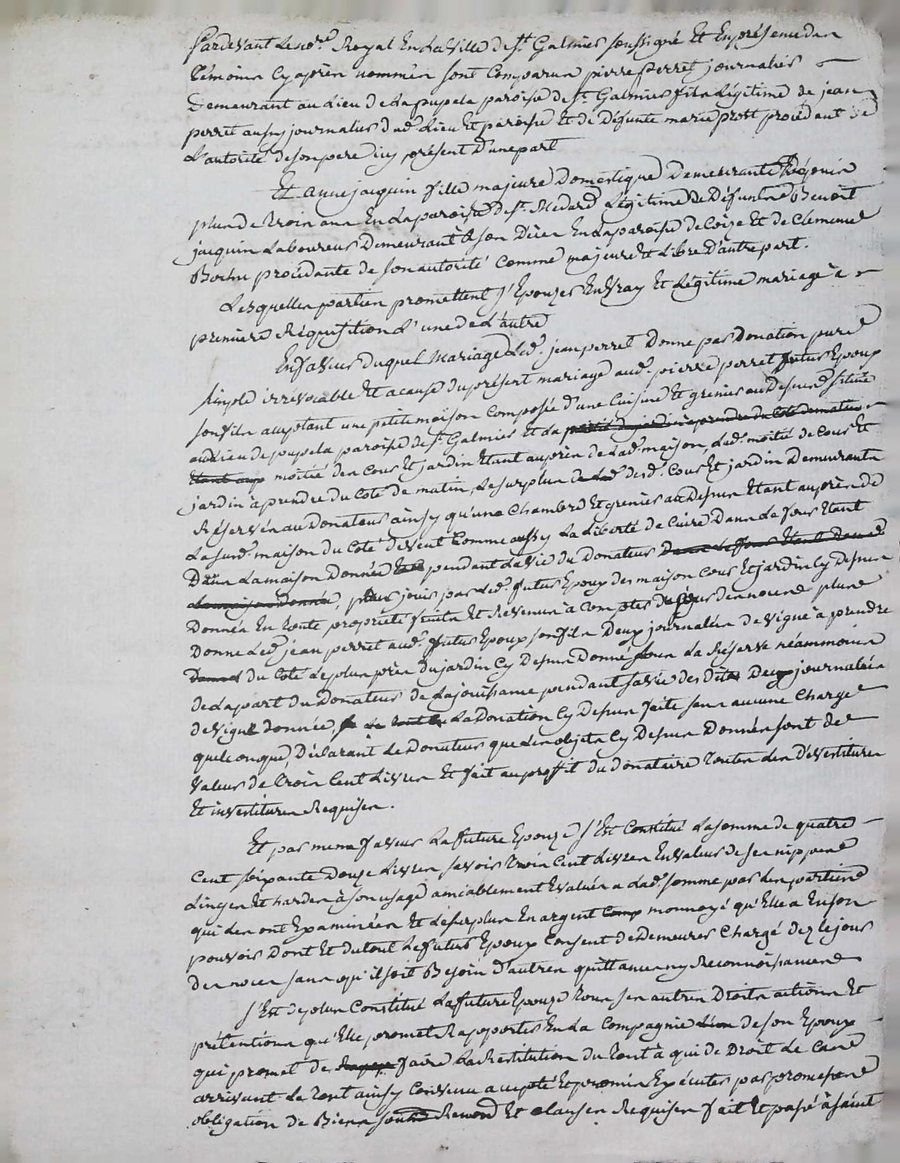 Pardevant le no.re Royal En la ville de St. Galmier soussigné Et En présence des
témoins cy après nommés sont comparus pierre perret journalier
demeurant au lieu de la pupela paroisse de St. Galmier fils légitime de jean
perret aussy journalier dud. lieu et paroisse Et de défunte marie prost procédant de
L'autorité de son pere icy présent d'une part
Et anne jaquin fille majeure Domestique Demeurante depuis
plus de trois ans En la paroisse de St. Medard Légitime de Défunts Benoit
jaquin Laboureur Demeurant à son Décès En la paroisse de Coize Et de Clemence
procédante de son autorité comme majeure et Libre D'autre part.
Lesquelles parties promettent s'Epouzer En vray Et Légitime mariage à
premiere Réquisition L'une de L'autre
En faveur duquel Mariage led. jean perret Donne par Donation pure
simple irrévocable Et a cause du présent mariage aud. pierre perret futur Epoux
son fils acceptant une petite maison Composée d'une Cuisine Et grenier au Dessus située
aud. lieu de pupela paroisse de St. Galmier et la partie du jardin à prendre du coté de matin
Etant aup moitié des Cour Et jardin Etant auprès de lad. maison lad. moitié de Cour Et
jardin à prendre du coté de matin, Le surplus desd. Cour Et jardin Demeurants
Réservés au Donateur ainsy qu'une Chambre Et grenier au Dessus Etant auprès de
La sud. maison du coté de vent Comme aussy La Liberté de Cuire Dans Le four Etant
Dans La maison Donnée pendant La vie du Donateur Dans le four Etant Dans
la maison Donnée, pour jouir par led. futur Epoux des maison Cour Et jardin Cy Dessus
Donnés En toute propriété fruits Et Revenus à Compter du jour des noces plus
Donne led. jean perret aud. futur Epoux son fils Deux journalées de vigne à prendre
Dans du Coté Le plus près du jardin Cy Dessus Donné sous La Réserve néammoins
de la part du Donateur de La jouissance pendant sa vie des dites Deux journalées
de vigne données, La Donation Cy Dessus faite sans aucune Charge
quelconque, Déclarant Le Donateur que les objets Cy Dessus Donnés sont de
valeur de trois Cent Livres Et fait au profit du donataire toutes les Dévestitures
Et investitures Requises.
Et par meme faveur La future Epouze s'Est Constitué La somme de quatre
Cent soixante Douze Livres savoir trois Cent Livres En valeur de ses nippes
Linges Et hardes à son usage amiablement Evalués a lad. somme par les parties
qui les ont Examinées Et le surplus En argent Comp monnoyé qu'Elle a En son
pouvoir Dont Et du tout Le futur Epoux Consent de Demeurer Chargé dez le jour
des noces sans qu'il soit Besoin d'autres quittances ny Reconnoissances
s'Est de plus Constitué La future Epouze tous ses autres Droits actions Et
prétentions qu'Elle promet Rapporter En La Compagnie de son Epoux
qui promet de faire La Restitution du tout à qui de Droit Le Cas
arrivant Le tout ainsy Convenu accepté Et promis Exécuter par promesses
obligation de Biens Et clauses Requises fait Et passé à saint